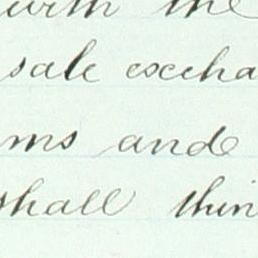 with the
sale excha
ms and
shall thin